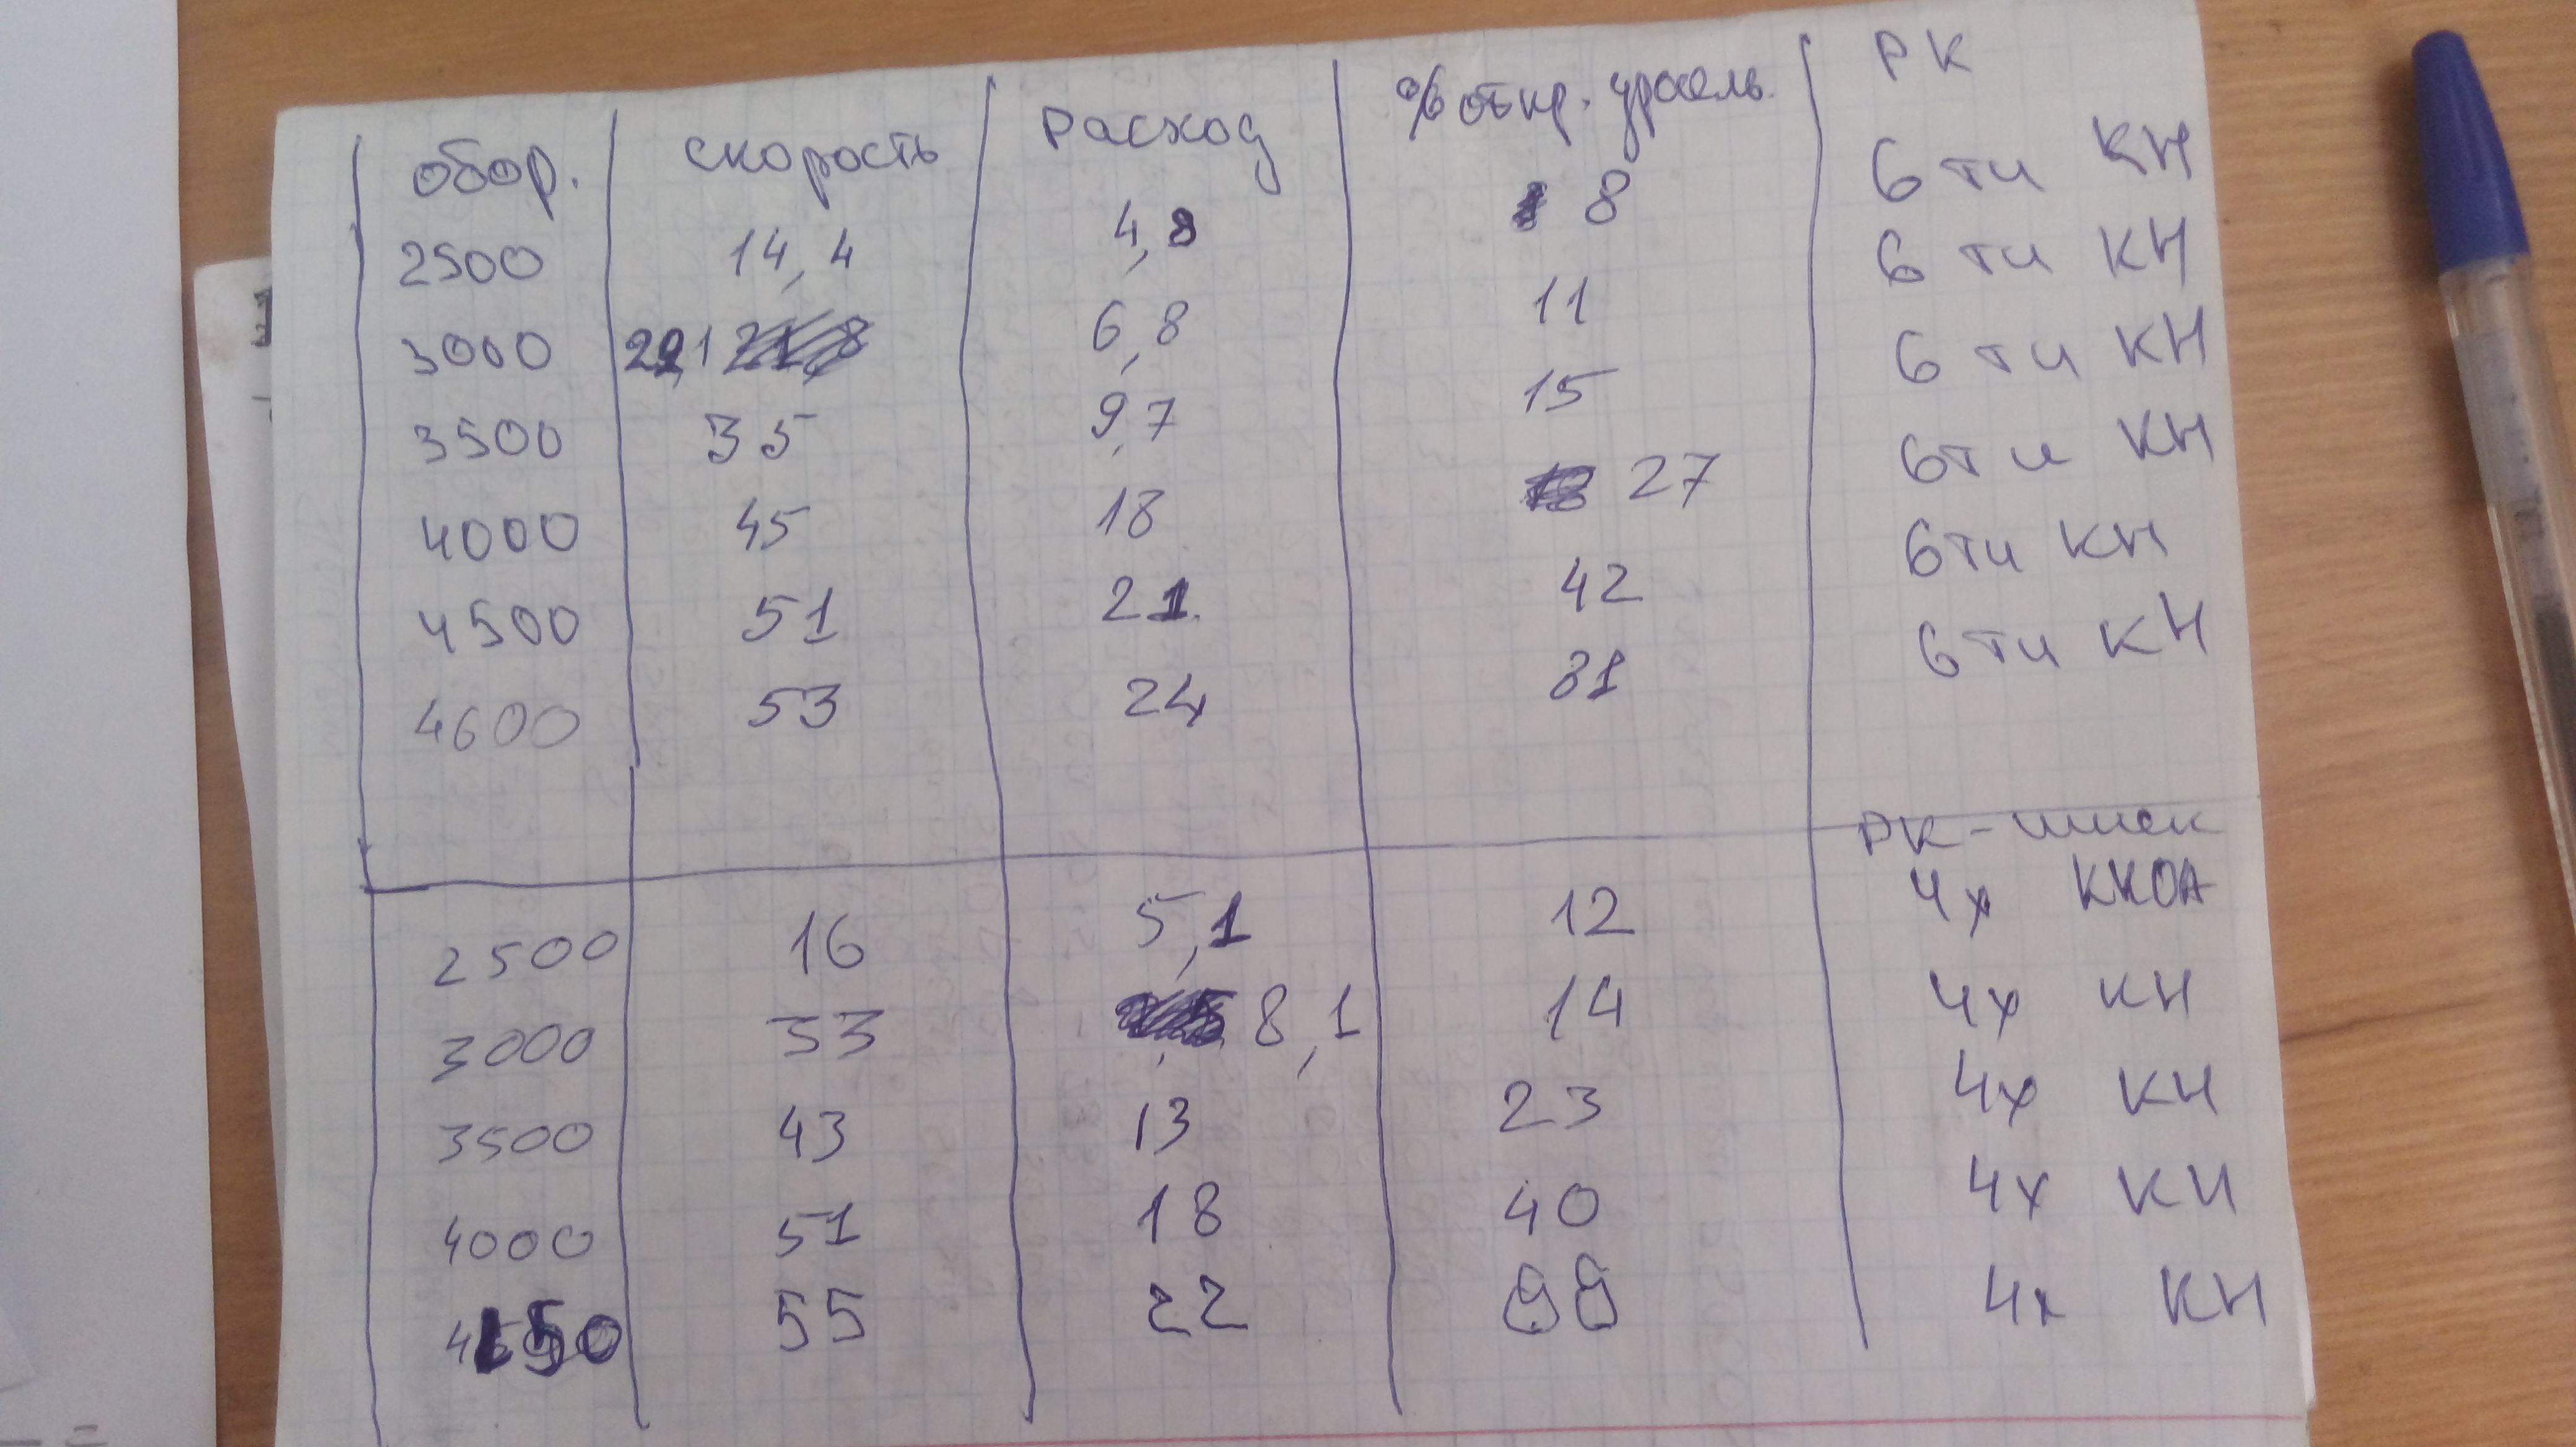 обор. скорость Расход % откр. дроссель. РК
2500 14,4 4,8 8 6 ти КН
3000 22,1 6,8 11 6 ти КН
3500 35 9,7 15 6 ти КН
4000 45 18 27 6 ти КН
4500 51 21 42 6 ти КН
4600 53 24 81 6 ти КН
РК-
2500 16 5,1 12 4х
3000 33 8,1 14 4х КН
3500 43 13 23 4х КН
4000 51 18 40 4х КН
4150 55 22 4х КН